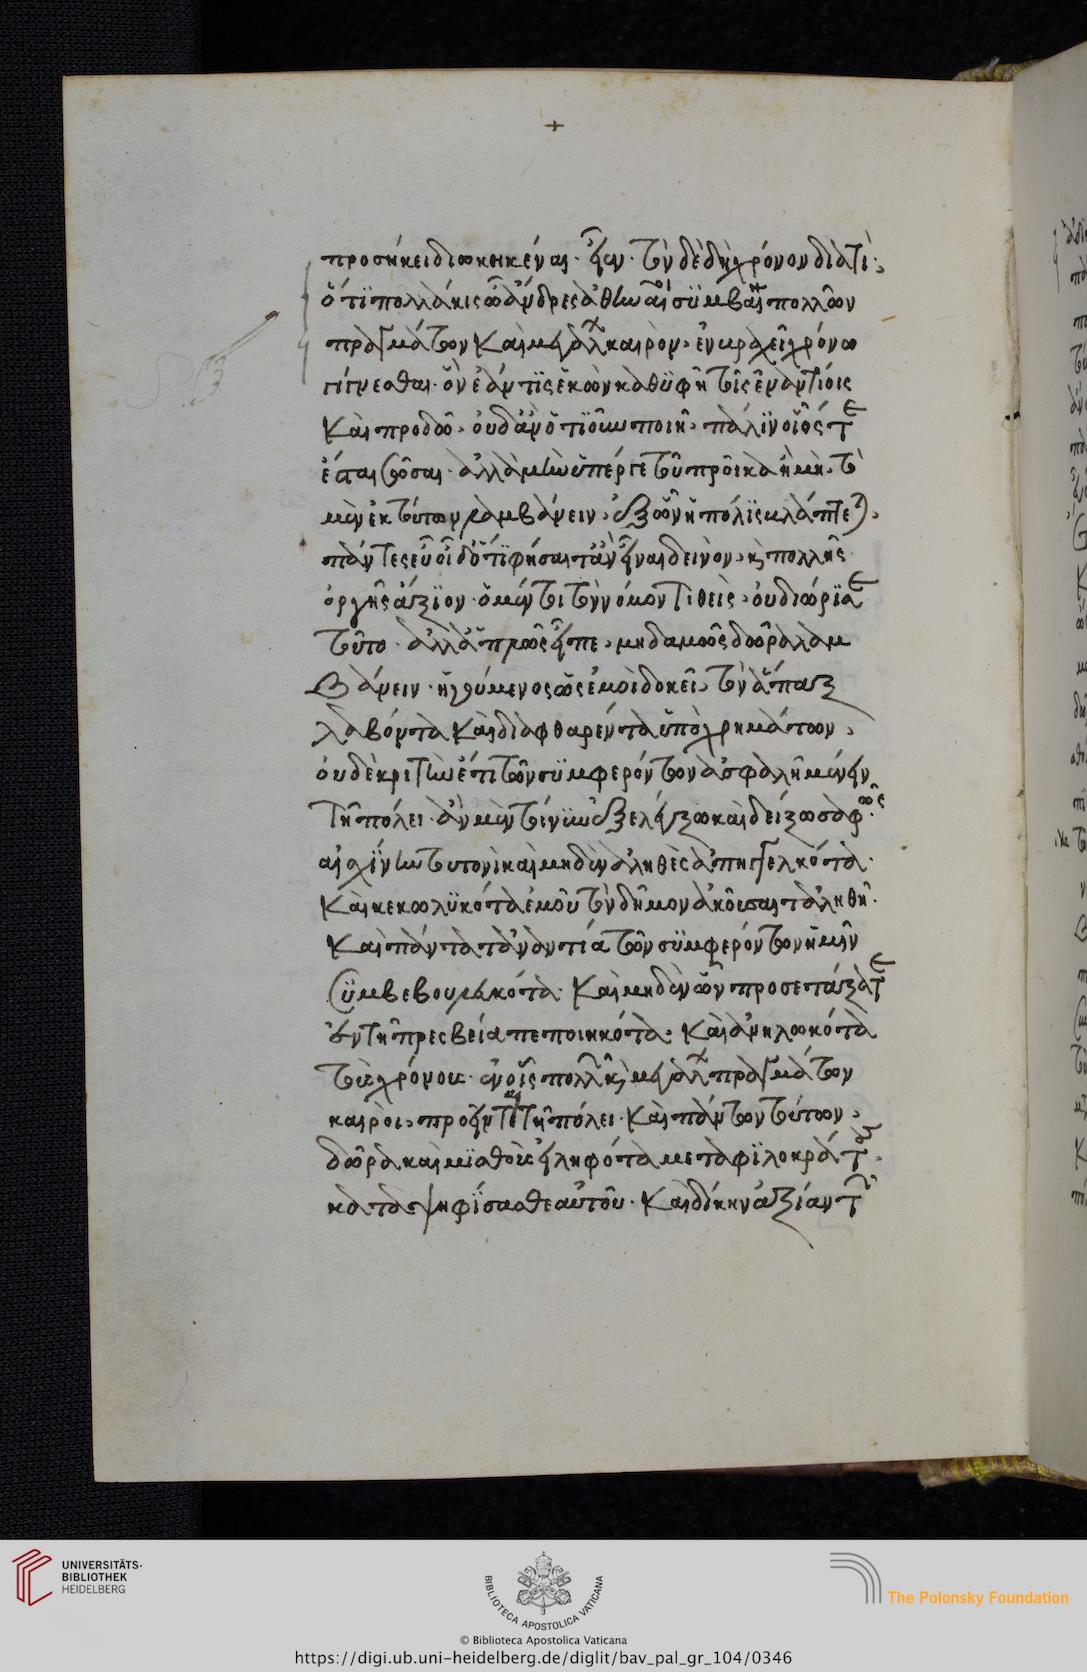 +
προσήκει διωκηκέναι· εἶεν· τὸν δὲ δὴ χρόνον διὰ τί·
ὅτι πολλάκις ὦ ἄνδρες ἀθηναῖοι συμβαίνει πολλῶν
πραγμάτων καὶ μεγάλων καιρὸν, ἐν βραχεῖ χρόνω
γίγνεσθαι· ὃν ἐάν τις ἑκὼν καθυφῆ τοῖς ἐναντίοις
καὶ προδῶ, οὐδ' ἂν ὁτιοῦν ποιῆ, πάλιν οἷός τε
ἔσται σῶσαι· ἀλλὰ μὴν ὑπέρ γε τοῦ προῖκα ἢ μὴ, τὸ
μὲν ἐκ τούτων λαμβάνειν, ἐξ ὧν ἡ πόλις βλάπτεται,
πάντες εὖ οἶδ' ὅτι φήσαιτ' ἂν εἶναι δεινὸν, καὶ πολλῆς
ὀργῆς ἄξιον· ὁ μέντοι τὸν νόμον τιθεὶς, οὐ διώρισε
τοῦτο· ἀλλ' ἁπλῶς εἶπε, μηδαμῶς δῶρα λαμ
βάνειν· ἡγούμενος ὡς ἐμοὶ δοκεῖ, τὸν ἅπαξ
λαβόντα καὶ διαφθαρέντα ὑπὸ χρημάτων,
οὐδὲ κριτὴν ἔτι τῶν συμφερόντων ἀσφαλῆ μένειν
τῆ πόλει· ἂν μὲν τοίνυν ἐξελέγξω καὶ δείξω σαφῶς
αἰσχίνην τουτονὶ καὶ μηδὲν ἀληθὲς ἀπηγγελκότα·
καὶ κεκωλυκότα ἐμοῦ τὸν δῆμον ἀκοῦσαι τἀληθῆ·
καὶ πάντα τἀναντία τῶν συμφερόντων ἡμῖν
συμβεβουλευκότα· καὶ μηδὲν ὧν προσετάξατε
ἐν τῆ πρεσβεία πεποιηκότα· καὶ ἀνηλωκότα
τοὺς χρόνους· ἐν οἷς πολλῶν καὶ μεγάλων πραγμάτων
καιροὶ, προεῖνται τῆ πόλει· καὶ πάντων τούτων,
δῶρα καὶ μισθοὺς εἰληφότα μετὰ φιλοκράτους·
καταψηφίσασθε αὐτοῦ· καὶ δίκην ἀξίαν τῶν
UNIVERSITÄTS-
BIBLIOTHEK
HEIDELBERG
BIBLIOTECA APOSTOLICA VATICANA
The Polonsky Foundation
© Biblioteca Apostolica Vaticana
https://digi.ub.uni-heidelberg.de/diglit/bav_pal_gr_104/0346